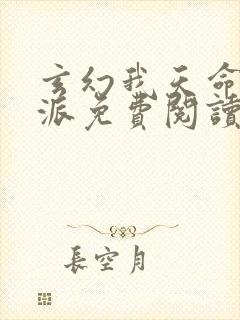 玄幻我天命
派免費閱讀
長空月